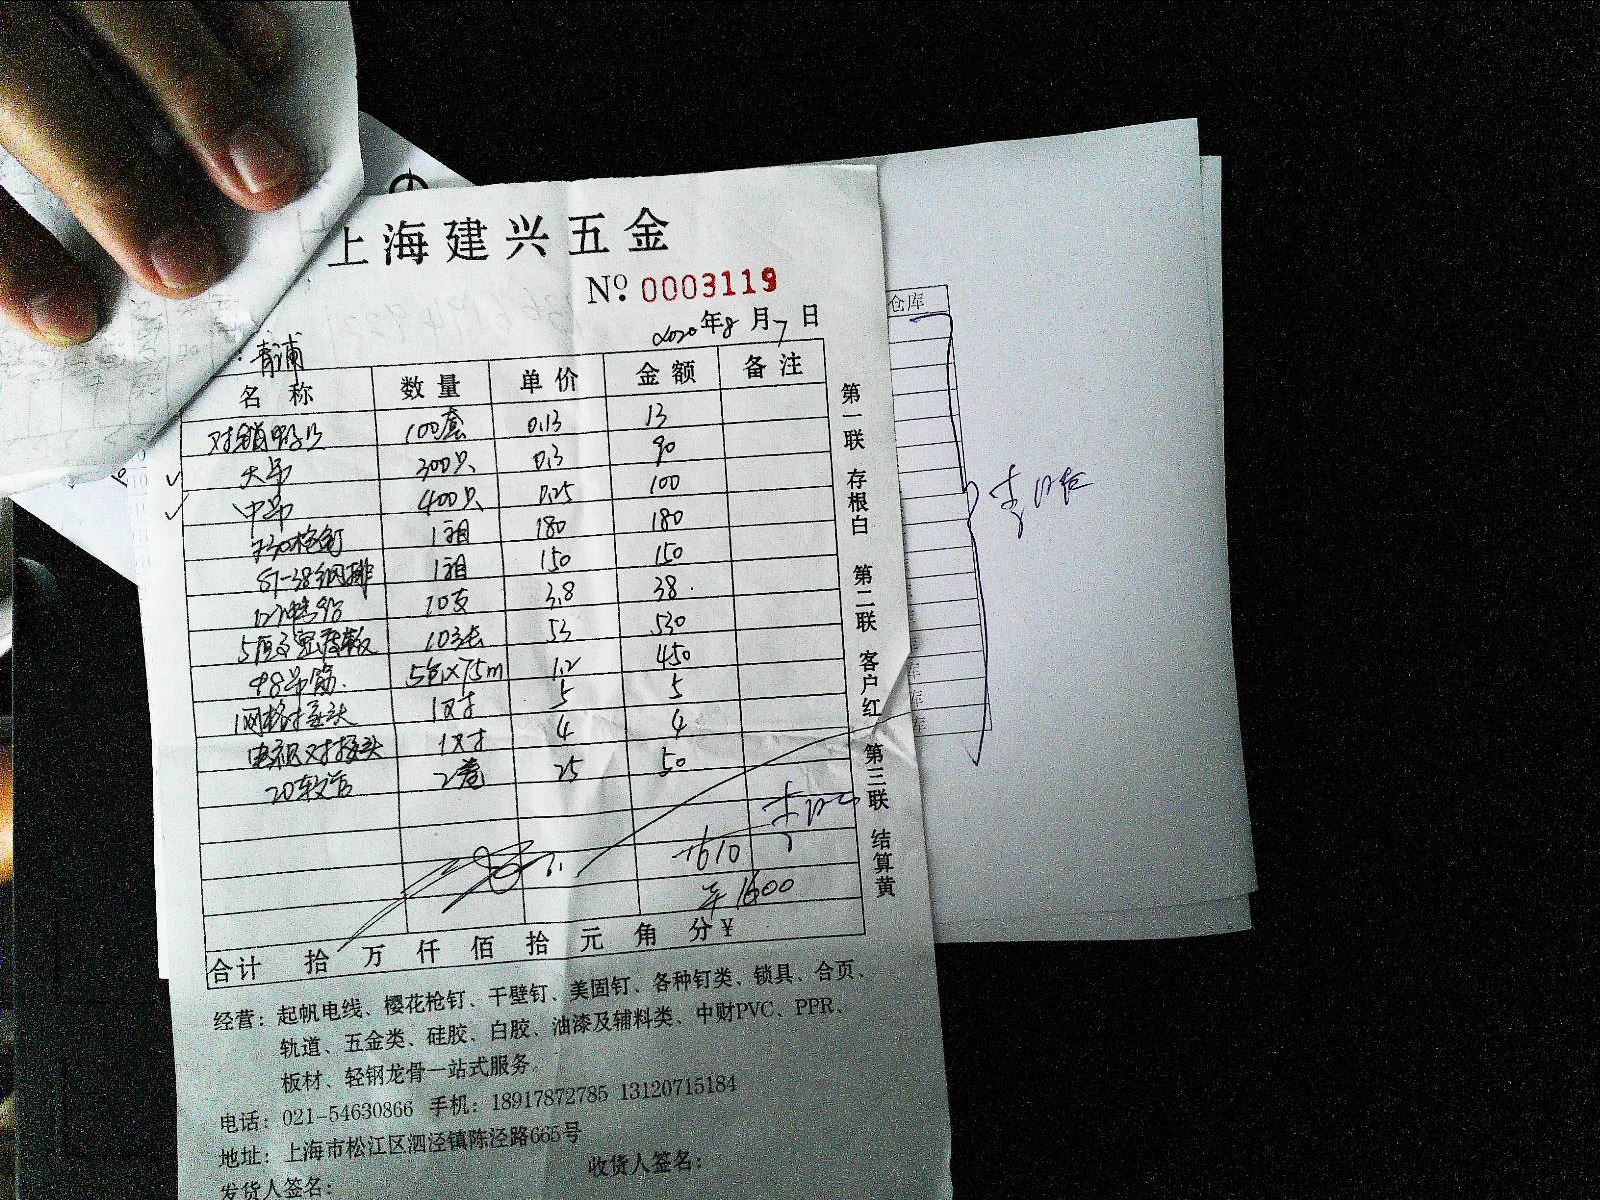 上海建兴五金
No. 0003119
2020年8月7日
青浦
名称 数量 单价 金额 备注
100套 0.13 13
大吊 300只 0.3 90
中吊 400只 0.25 100
1箱 180 180
1箱 150 150
10支 3.8 38.
5厘 密度板 10张 53 530
φ8吊筋. 5包×75m 1.2 450
网络对接头 1只 5 5
电视对接头 1只 4 4
20软管 2卷 25 50
1610
¥1600
合计 拾 万 仟 佰 拾 元 角 分¥
第一联 存根白 第二联 客户红 第三联 结算黄
经营：起帆电线、樱花枪钉、干壁钉、美固钉、各种钉类、锁具、合页、
轨道、五金类、硅胶、白胶、油漆及辅料类、中财PVC、PPR、
板材、轻钢龙骨一站式服务。
电话：021-54630866 手机：18917872785 13120715184
地址：上海市松江区泗泾镇陈泾路665号
发货人签名： 收货人签名：
仓库